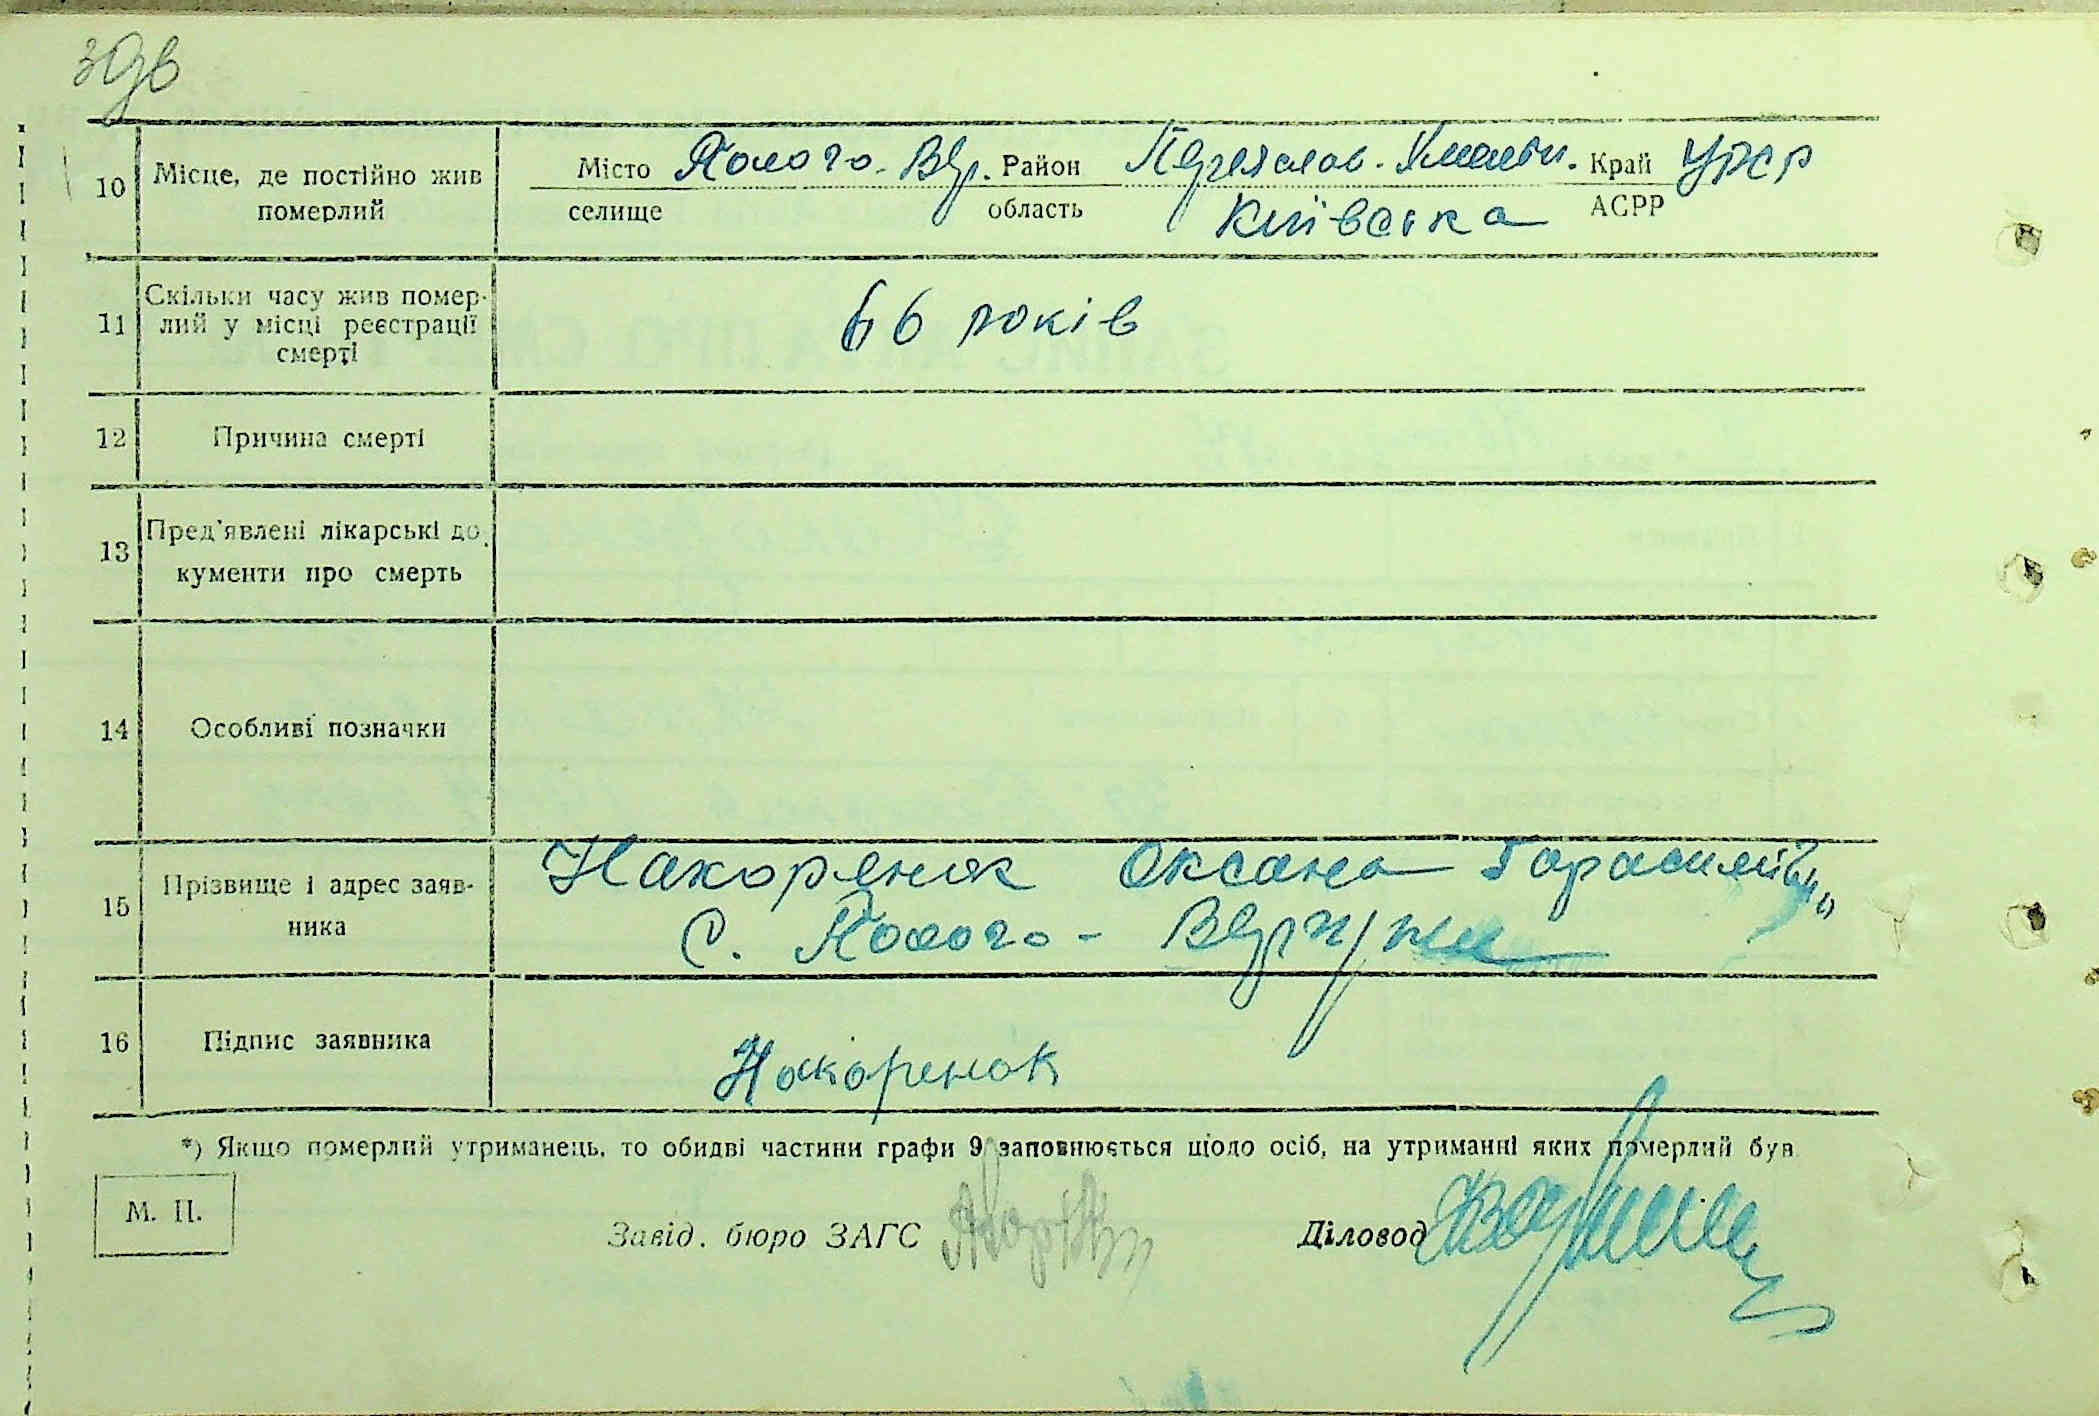 10 Місце, де постійно жив померлий
Місто Полого-Вер. Район Переяслав-Хмельн. Край УРСР
селище область Київська АСРР
11 Скільки часу жив помер-
лий у місці реєстрації
смерті
66 років
12 Причина смерті
13 Пред'явлені лікарські до-
кументи про смерть
14 Особливі позначки
15 Прізвище і адрес заяв-
ника
Накоренок Оксана Гарасимівна
с. Полого-Вергуни
16 Підпис заявника
Накоренок
*) Якщо померлий утриманець, то обидві частини графи 9 заповнюється щодо осіб, на утриманні яких померлий був
М. П.
Завід. бюро ЗАГС Діловод